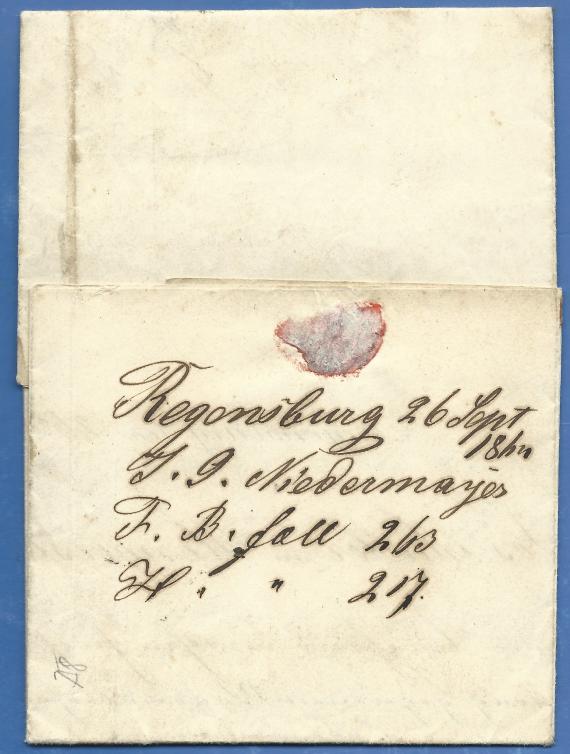 Regensburg 26 Sept
J. J. Niedermayer
F. B. fall 263
H. " 217.